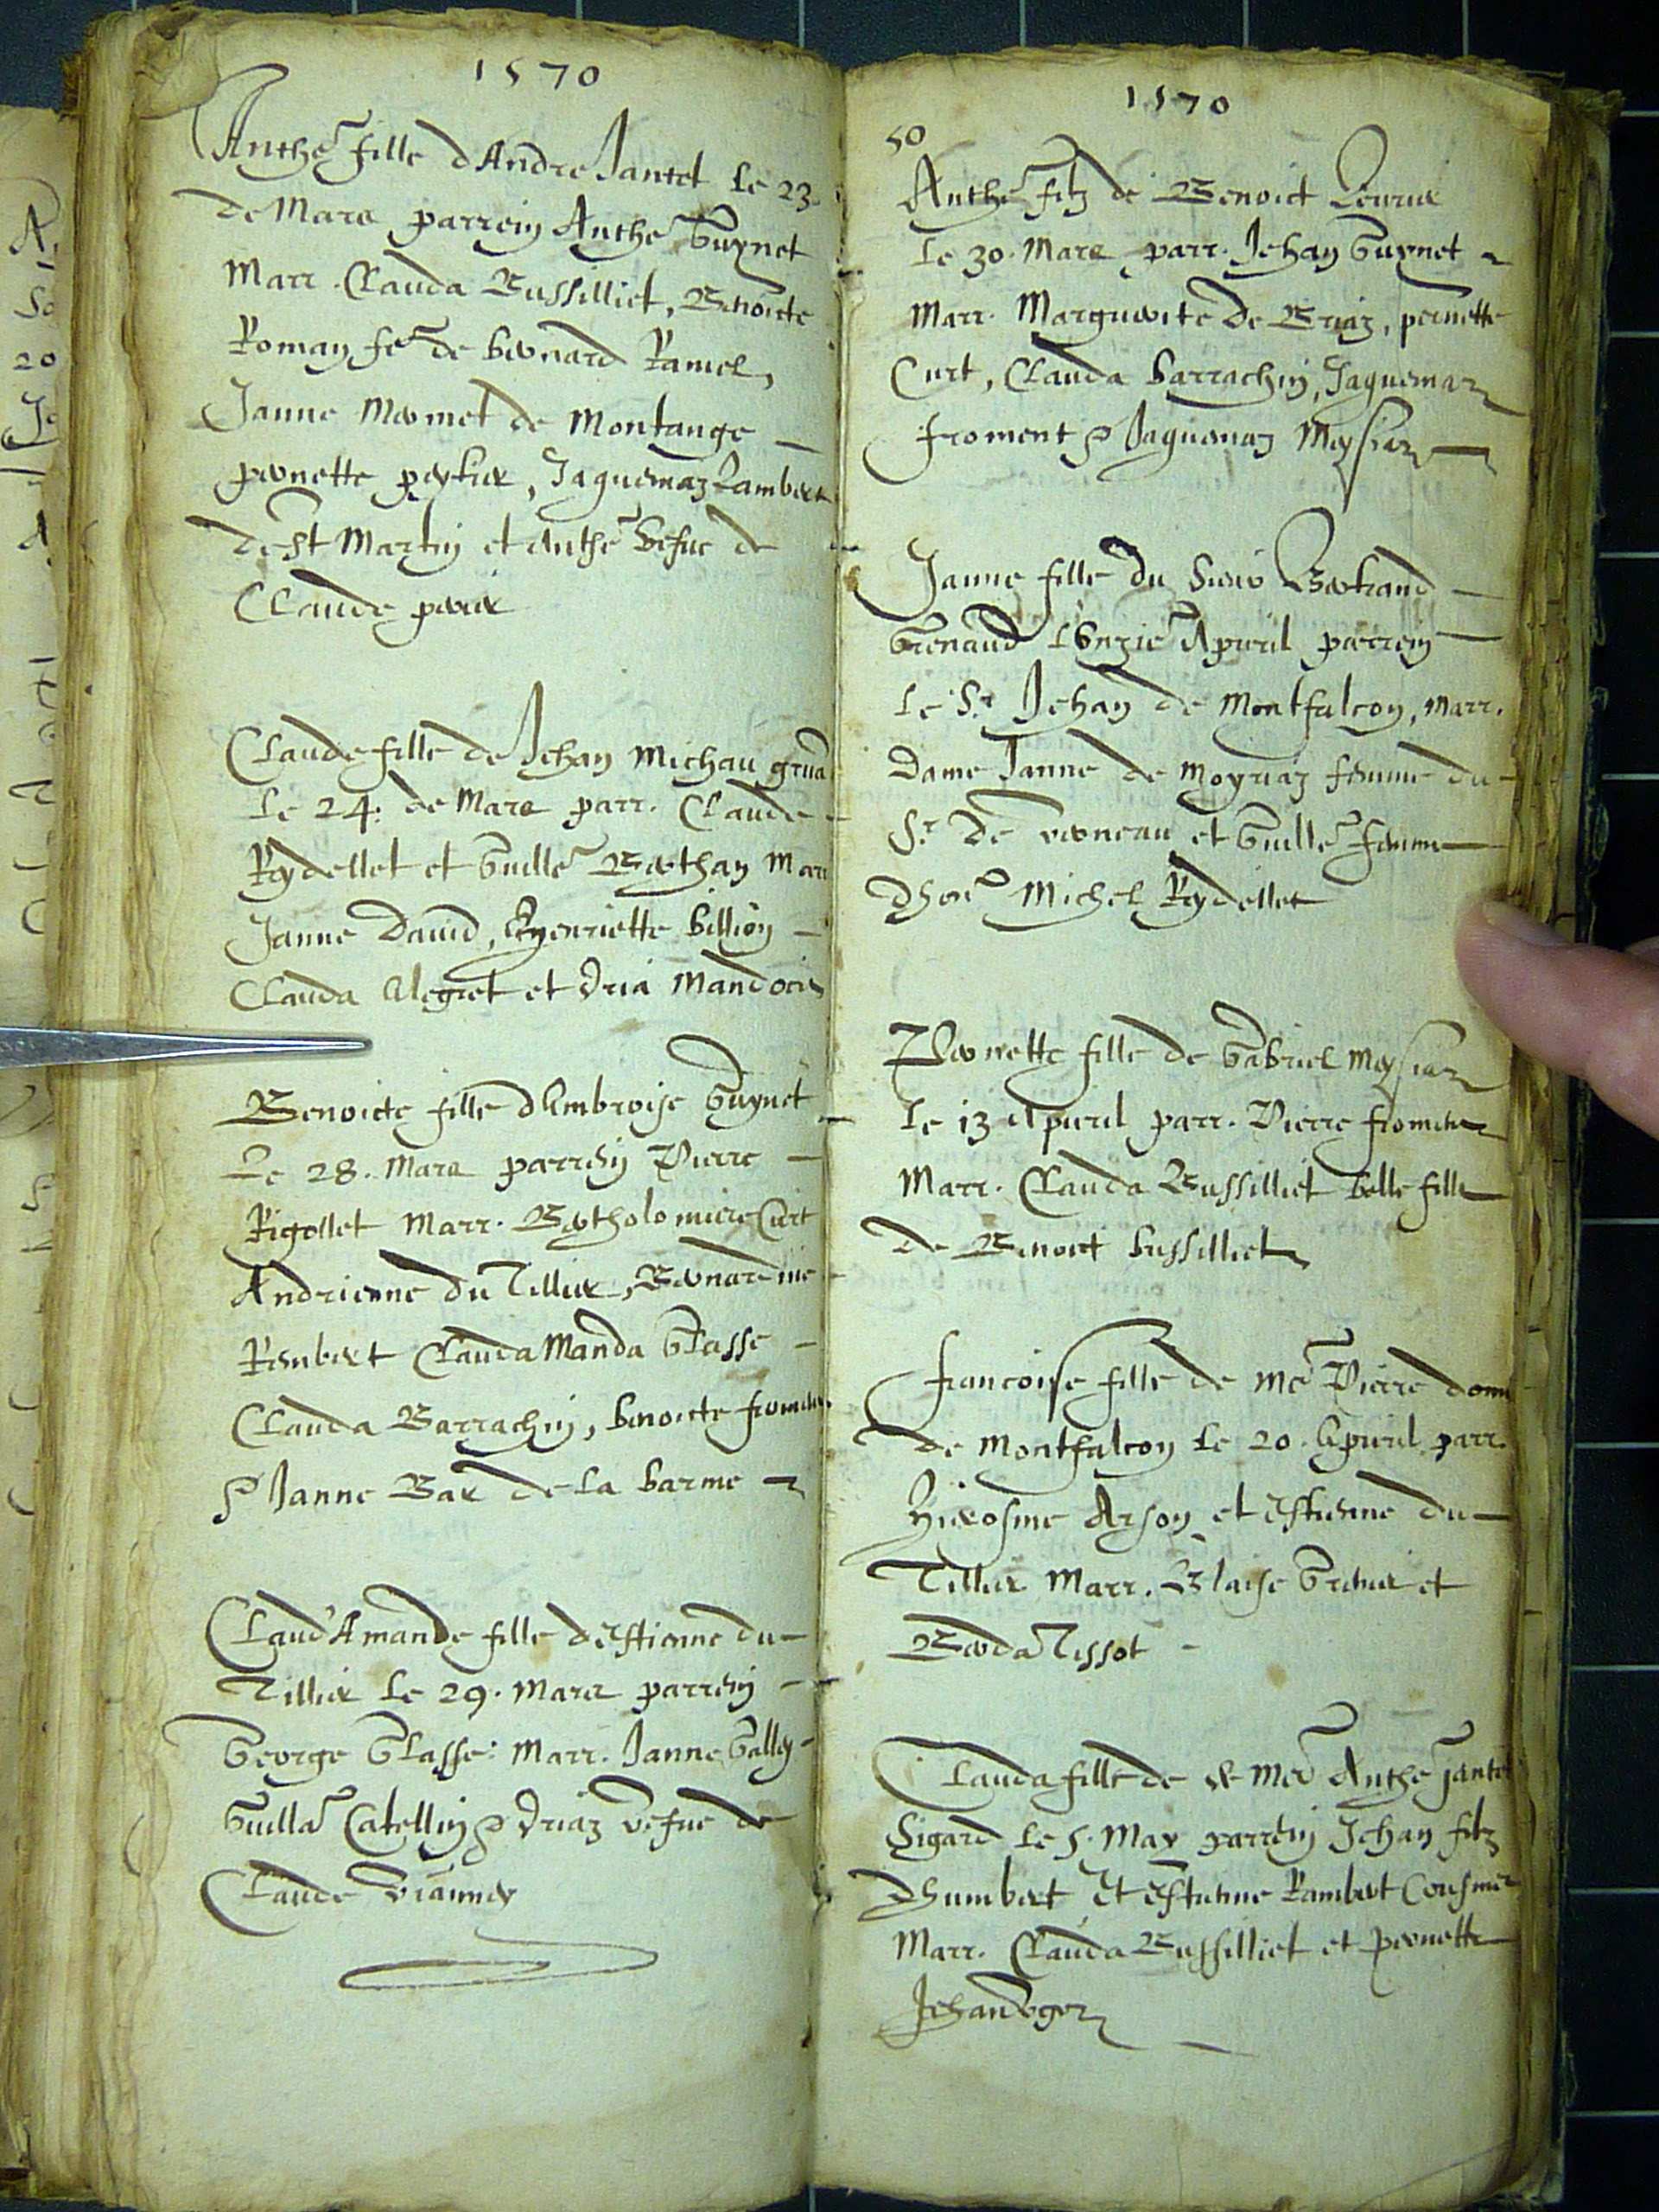 1570
Anthe fille d'Andre Jantet le 23.
de Mars parrein Anthe Guynet
Marr. Clauda Bussilliet, Benoicte
Roman fe de bernard Ramel,
Janne Mermet de Montange
pernette peytier, Jaquemaz Lambert
de St Martin et Anthe vefue de
Claude perier
Claude fille de Jehan Michau
le 24. de Mars parr. Claude
Reydellet et Guille Berthan Marr
Janne Dauid, Henriette billion
Clauda Alegret et Dria
Benoicte fille d'Ambroise Guynet
Le 28. Mars parrein Pierre
Rigollet Marr. Bertholomiere Curt
Andrienne du Tillier, Bernardine
Rambert Clauda Manda Glasse
Clauda Barrachin, benoicte froment
& Janne Bar de la barme
Claud'Amande fille d'Estienne du
Tillier le 29. Mars parrein
George Glasse: Marr. Janne Galley
Guilla Catellin & Driaz vefue de
Claude vianney
1570
50
Anthe filz de Benoict
le 30. Mars parr. Jehan Guynet
Marr. Marguerite de Briaz, pernette
Curt, Clauda barrachin, Jaquemaz
froment & Jaquemaz Meysiaz
Janne fille du Sieur Bertrand
Grenaud l'unzie Apuril parrein
le Sr. Jehan de Montfalcon, Marr.
Dame Janne de Moyriaz femme du
Sr. de verneau et Guille femme
d'hon Michel Reydellet
Pernette fille de Gabriel Meysiaz
le 13 Apuril parr. Pierre froment
Marr. Clauda Bussilliet belle fille
de Benoict bussilliet
francoise fille de Me Pierre
de Montfalcon le 20. Apuril parr.
Hierosme Arson et Estienne du
Tillier Marr. Blaise Grenier et
Berda Tissot
Clauda fille de Me Anthe jantet
Sigard le 5. May parrein Jehan filz
d'humbert et Estienne Rambert
Marr. Clauda Bussilliet et pernette
Jehan